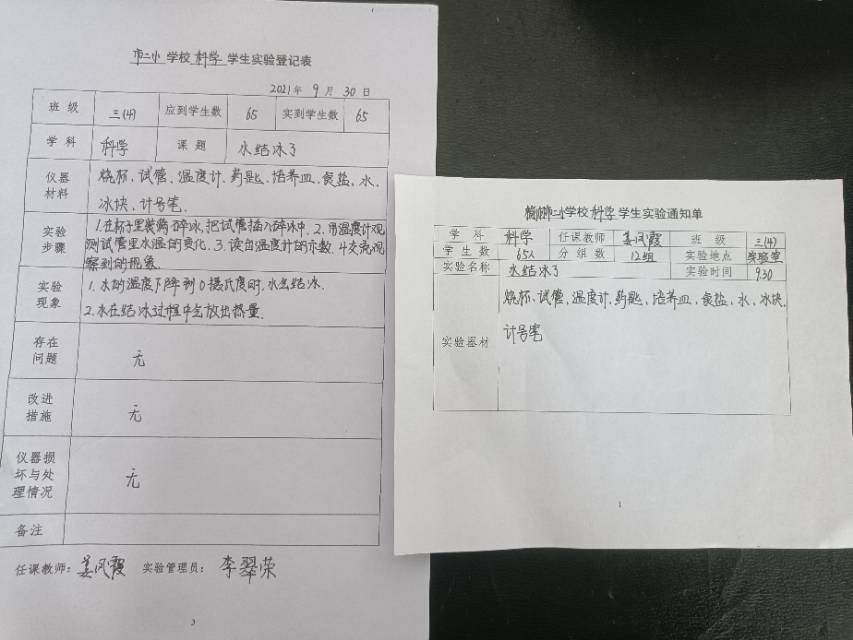 市二小 学校 科学 学生实验登记表
2021年 9 月 30 日
班 级 三(4) 应到学生数 65 实到学生数 65
学 科 科学 课 题 水结冰了
仪器材料 烧杯、试管、温度计、药匙、培养皿、食盐、水、
冰块、计号笔.
实验步骤 1.在杯子里装满碎冰,把试管插入碎冰中. 2.用温度计观
测试管里水温的变化. 3.读出温度计的示数. 4.交流观
察到的现象.
实验现象 1.水的温度下降到0摄氏度时,水会结冰.
2.水在结冰过程中会放出热量.
存在问题 无
改进措施 无
仪器损坏与处理情况 无
备注
任课教师: 姜凤霞 实验管理员: 李翠荣
3
市二小学校 科学 学生实验通知单
学 科 科学 任课教师 姜凤霞 班 级 三(4)
学 生 数 65人 分 组 数 12组 实验地点 实验室
实验名称 水结冰了 实验时间 9.30
实验器材 烧杯、试管、温度计、药匙、培养皿、食盐、水、冰块、
计号笔
1